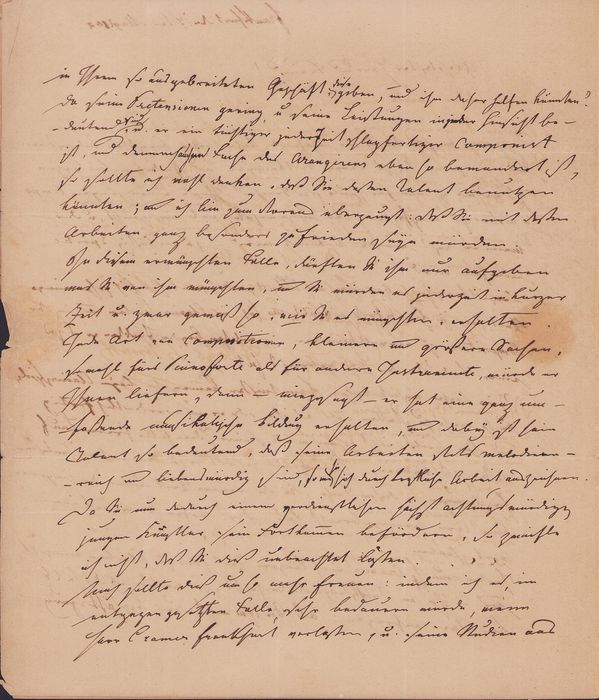 in Ihrem so ausgebreiteten Geschäft diese geben, und ihm daher helfen könnten?
Da seine Pretensionen gering, u seine Leistungen in jeder Hinsicht be-
-deutend sind, er ein tüchtiger jederzeit schlagfertiger Componist
ist, und dennoch im Fache des Arangirens eben so bewandert ist,
so sollte ich wohl denken, daß Sie dessen Talent benutzen
könnten; und ich bin zum Voraus überzeugt, daß Sie mit dessen
Arbeiten ganz besonders zufrieden seyn würden.
In diesem erwünschten Falle, dürften Sie ihm nur aufgeben
was Sie von ihm wünschten, und Sie würden es jederzeit in kurzer
Zeit u. zwar gewiß so, wie Sie es wünschten, erhalten.
Jede Art von Compositionen, kleinere und größere Sachen,
sowohl fürs Pianoforte als für andere Instrumente, würde er
Ihnen liefern, denn – wie gesagt – er hat eine ganz um-
-fassende musikalische Bildung erhalten, und dabey ist sein
Talent so bedeutend, daß seine Arbeiten stets melodieen-
-reich und liebenswürdig sind, sich durch treffliche Arbeit auszeichnen.
Da Sie nun dadurch einem verdienstlichen höchst achtungswürdigen
jungen Künstler sein Fortkommen befördern, so zweifle
ich nicht, daß Sie dies unbeachtet lassen.
Mich sollte dies um so mehr freuen: indem ich es, im
entgegen gesetzten Falle, sehr bedauern würde, wenn
Herr Cramer Frankfurt verlassen, u. seine Studien aus